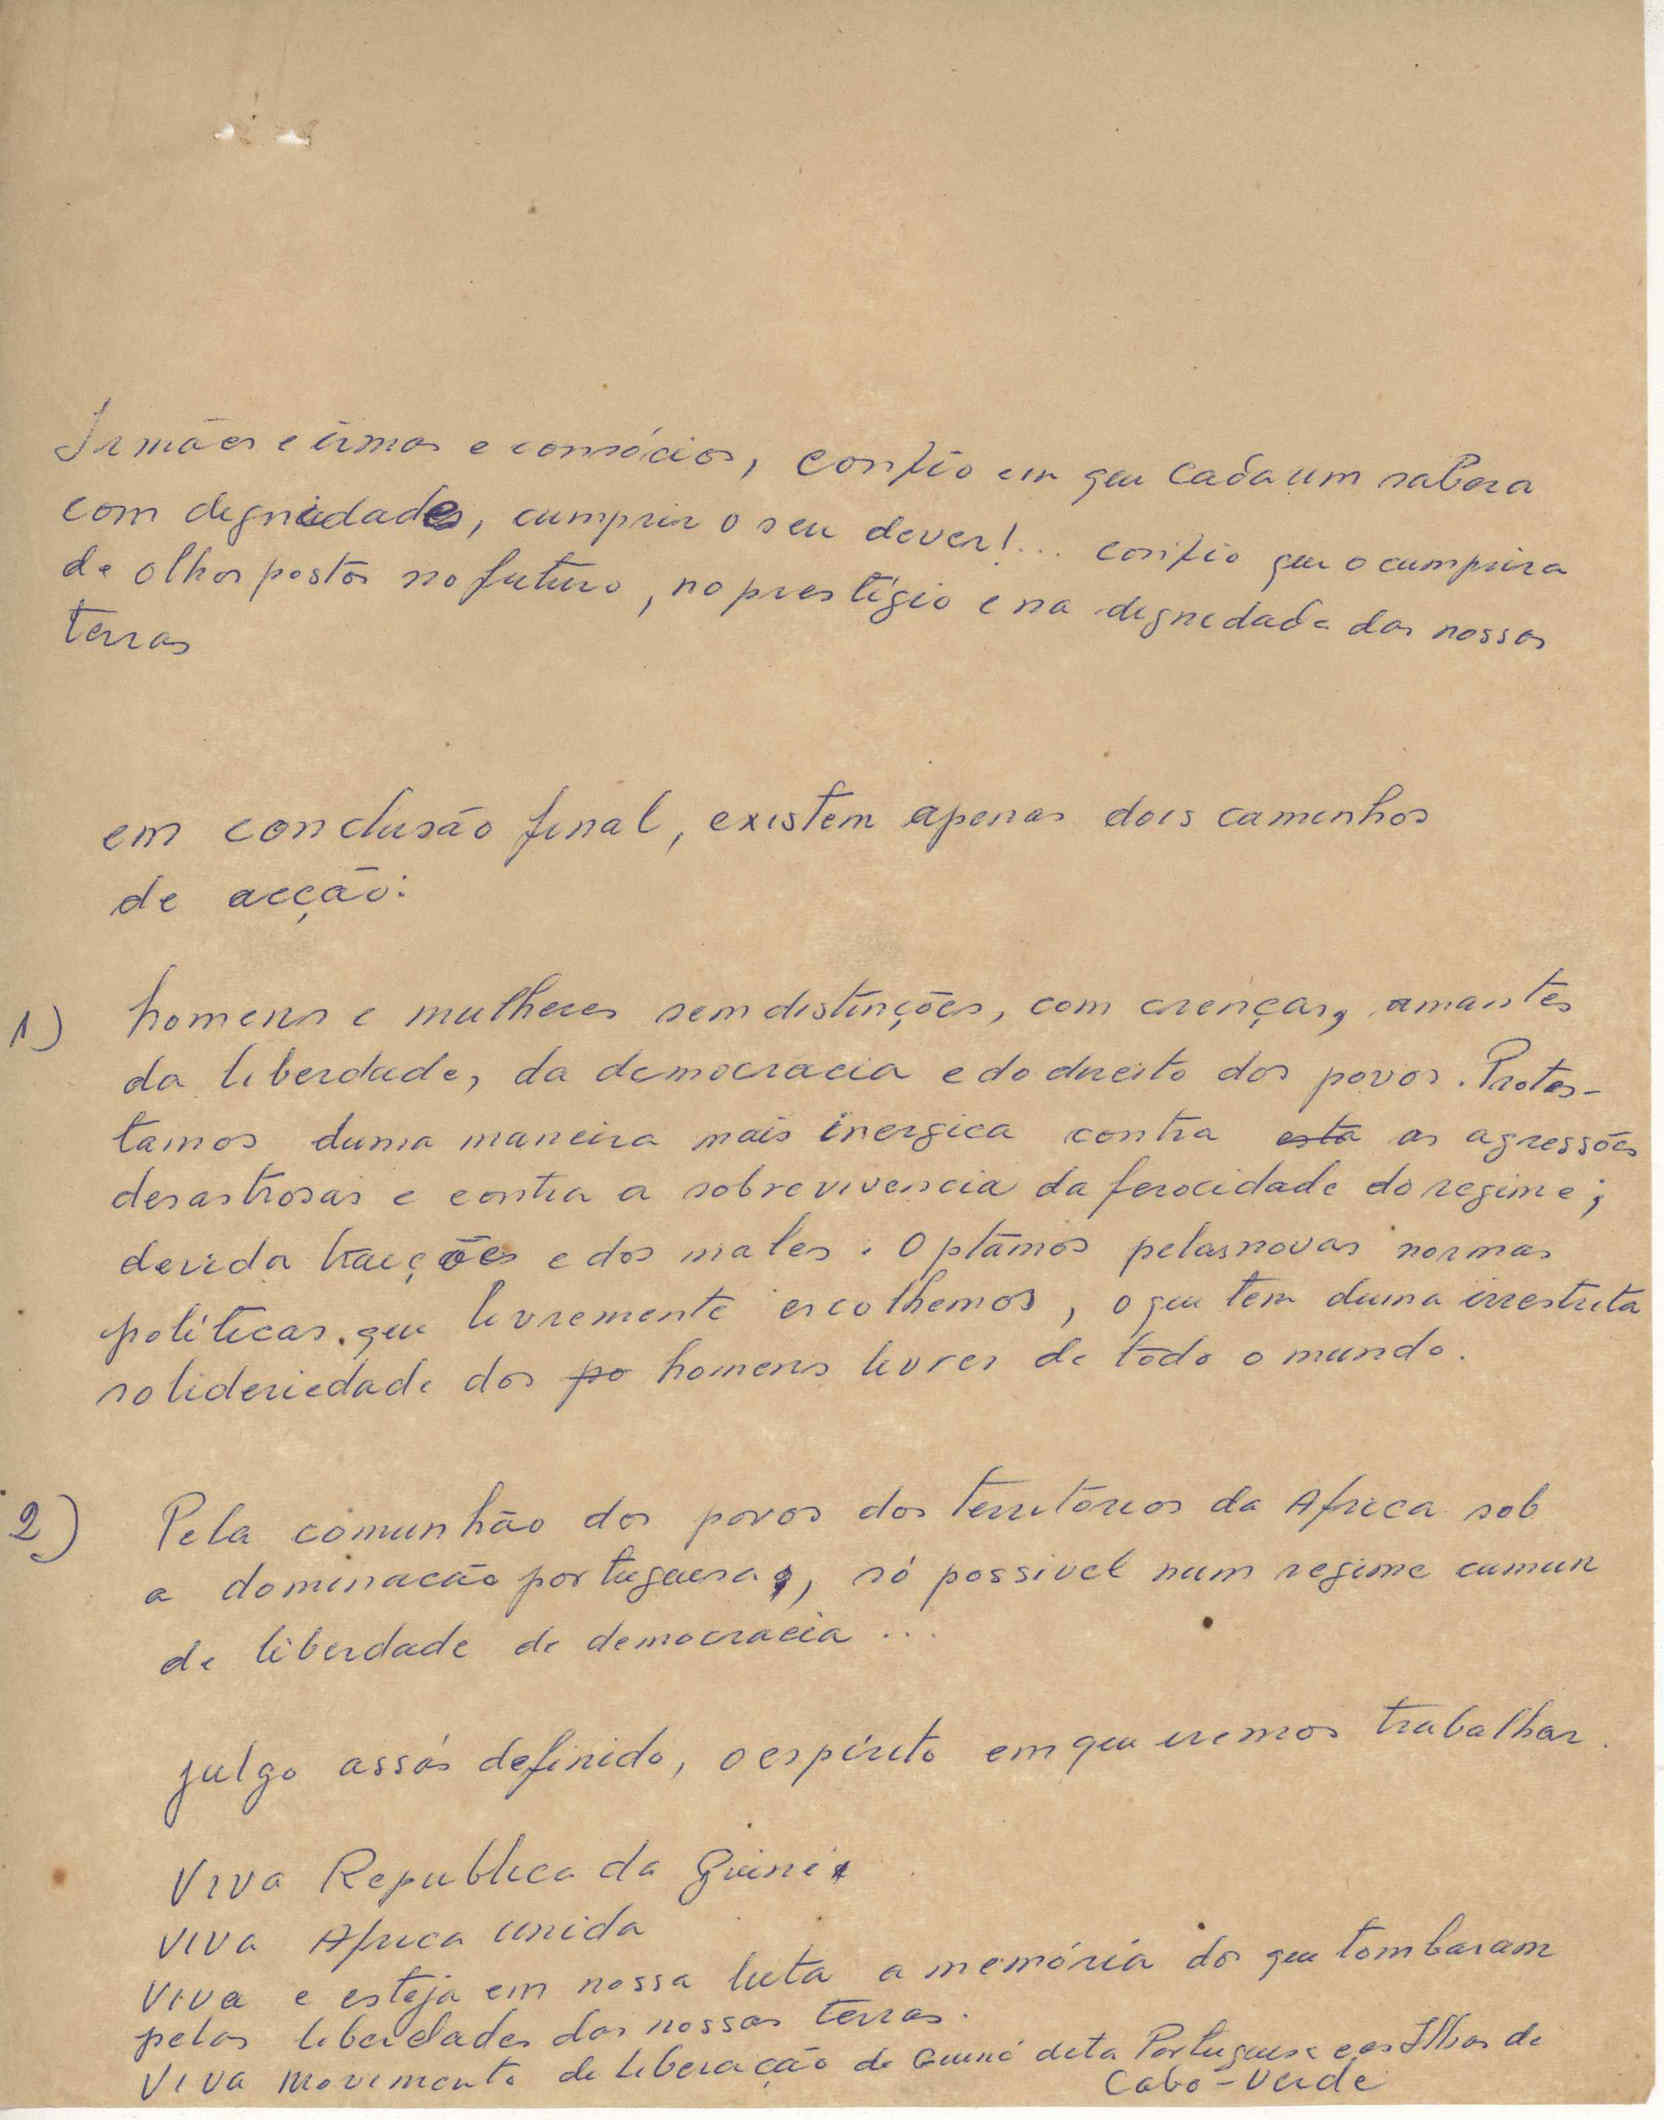 Irmães e irmas e consócios, confio em que cada um sabera
com degnidades, cumprir o seu dever!... confio que o cumprira
de olhos postos no futuro, no prestígio e na degnedade das nossas
terras
em conclusão final, existem apenas dois caminhos
de acção:
1) homens e mulheres sem distinções, com crenças, amantes
da liberdade, da democracia e do direito dos povos. Protes-
tamos duma maneira mais inergica contra esta as agressões
desastrosas e contra a sobrevivencia da ferocidade do regime;
devida traições e dos males. Optâmos pelas novas normas
políticas. que livremente escolhemos, o que tem duma irrestrita
solideriedade dos po homens livres de todo o mundo.
2) Pela comunhão dos povos dos territórios da Africa sob
a dominacão portuguesa, só possivel num regime cumun
de liberdade de democracia ...
julgo assás definido, o espírito em que iremos trabalhar.
Viva Republica da Guiné
Viva Africa unida
Viva e esteja em nossa luta a memória dos que tombaram
pelas liberdades das nossas terras.
Viva Movimento de liberação de Guiné dita Portuguesa e as Ilhas de
Cabo-Verde